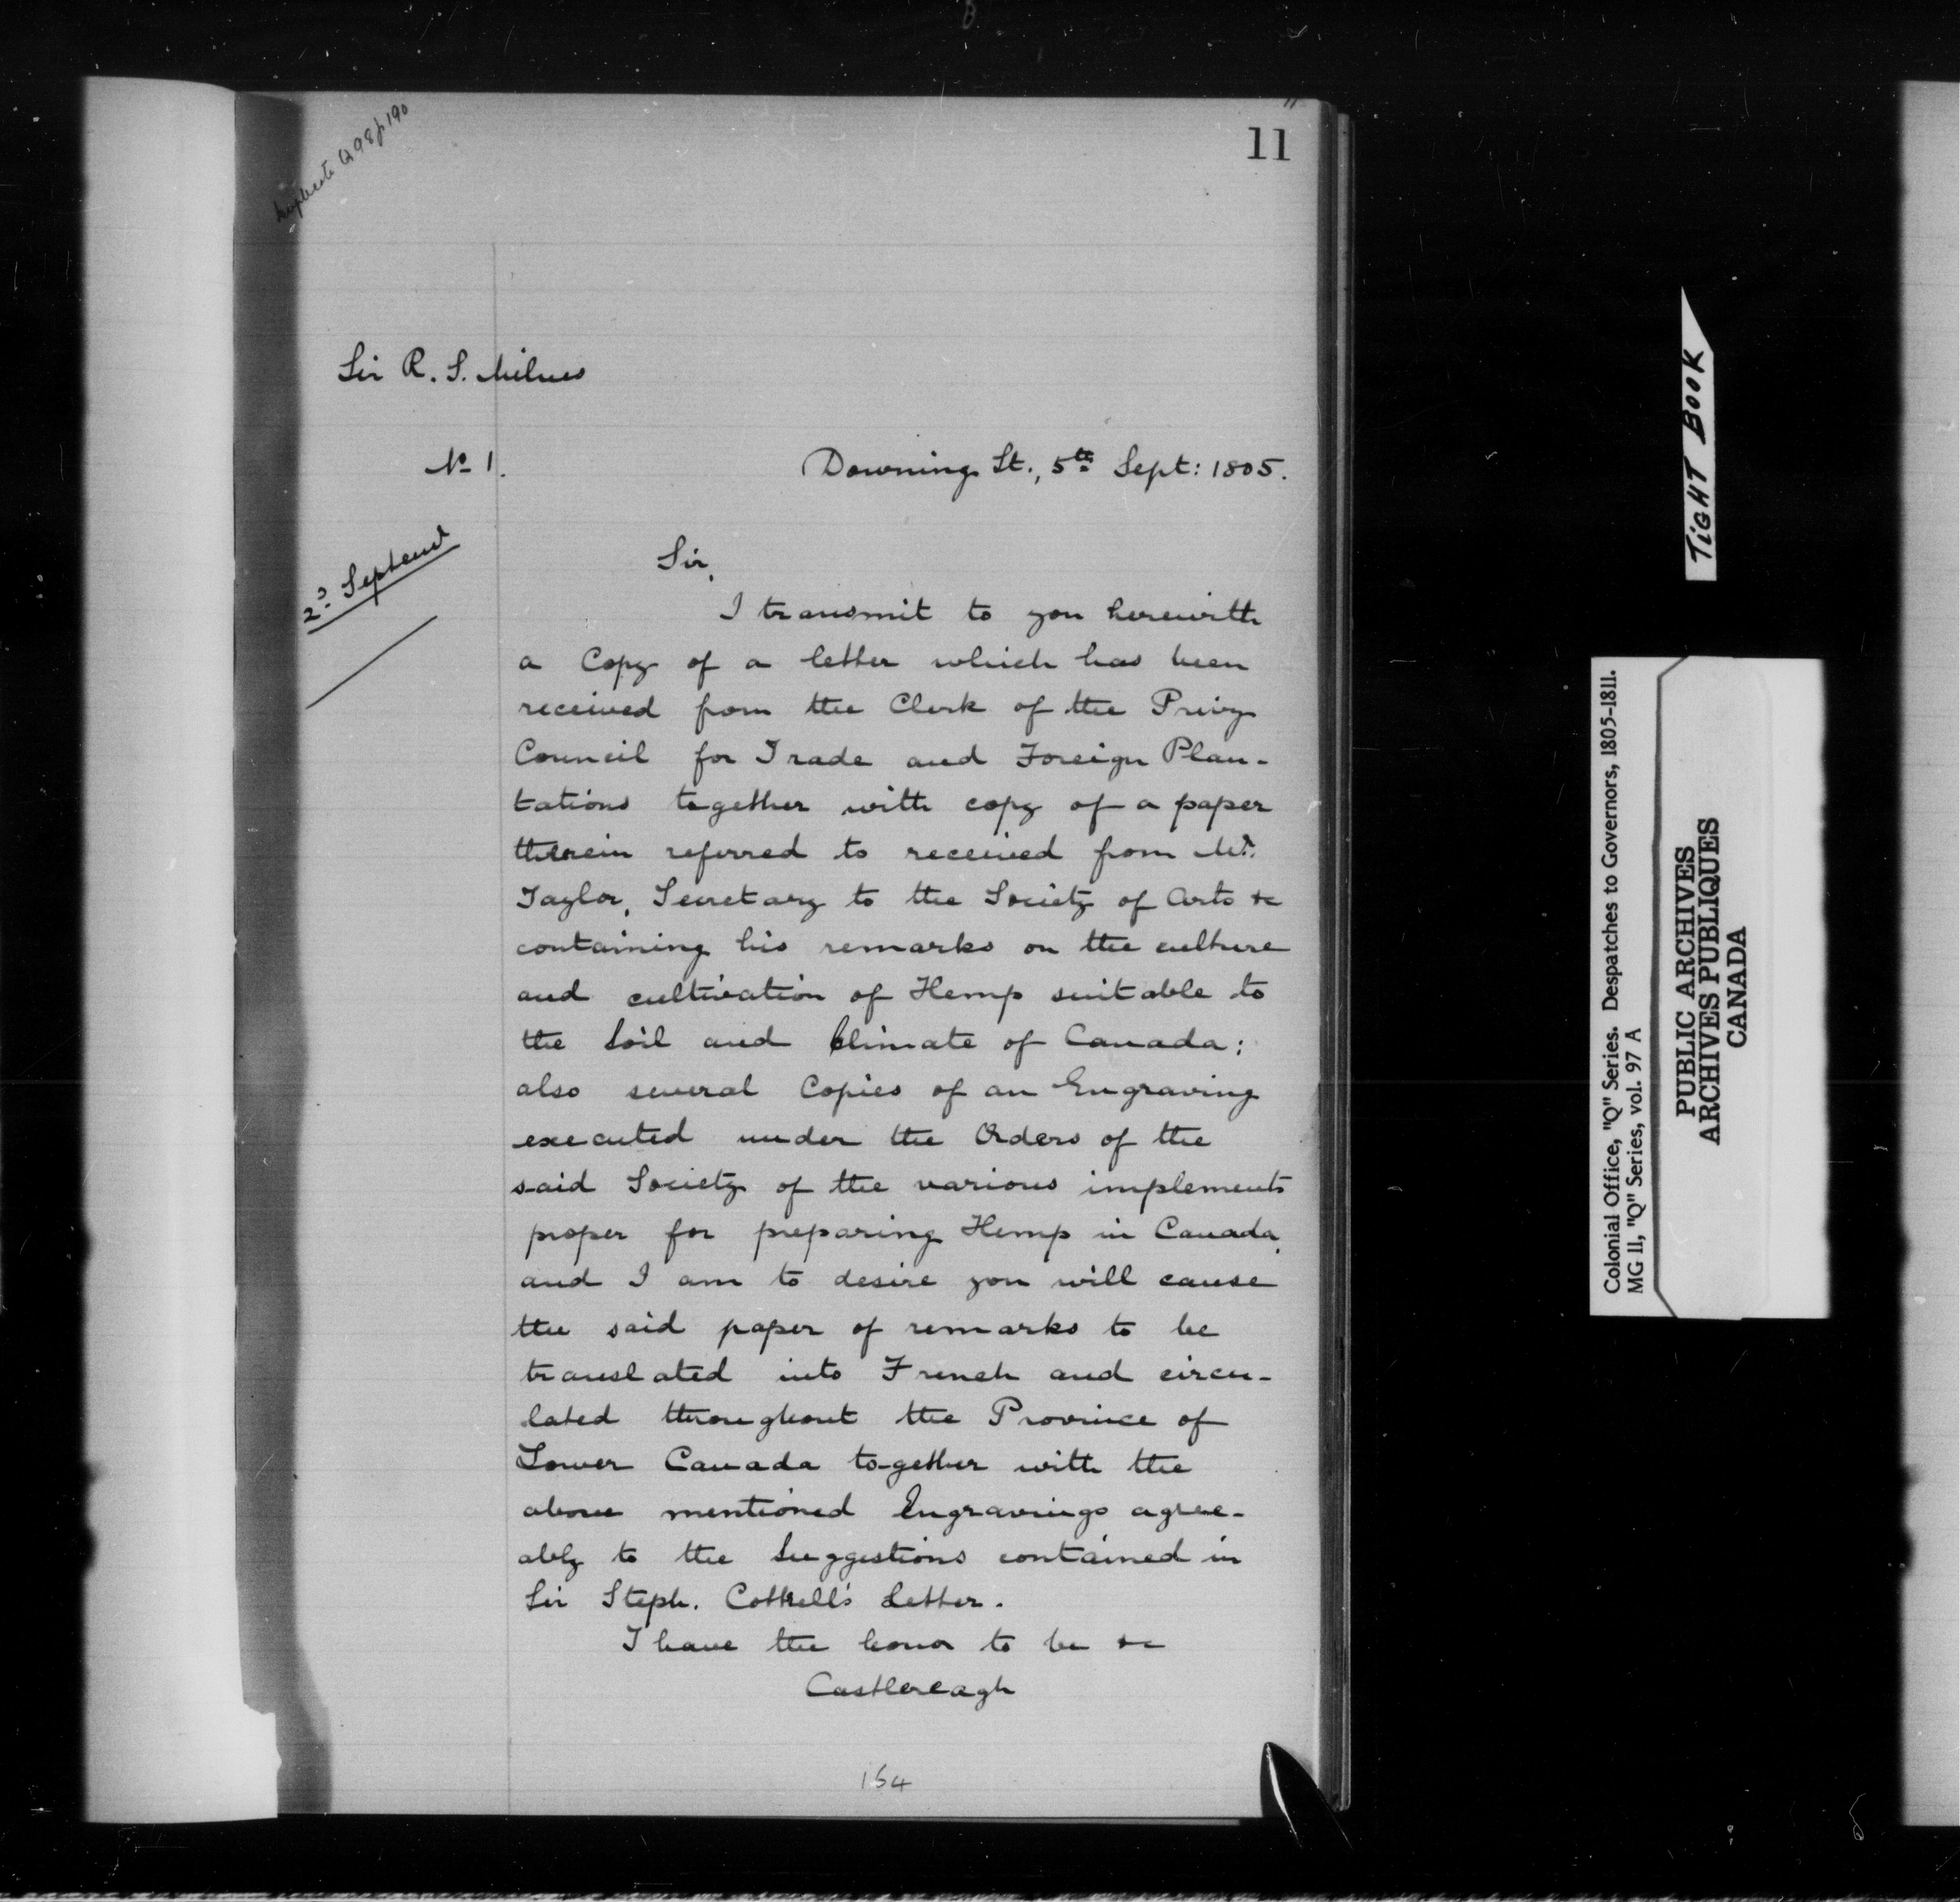 11
duplicate Q98 p190
Sir R. S. Milnes
No 1.
Downing St., 5th Sept: 1805.
2d Septemr
Sir,
I transmit to you herewith
a Copy of a letter which has been
received from the Clerk of the Privy
Council for Trade and Foreign Plan-
tations together with copy of a paper
therein referred to received from Mr.
Taylor, Secretary to the Society of Arts &c
containing his remarks on the culture
and cultivation of Hemp suitable to
the Soil and Climate of Canada:
also several Copies of an Engraving
executed under the Orders of the
said Society of the various implements
proper for preparing Hemp in Canada,
and I am to desire you will cause
the said paper of remarks to be
translated into French and circu-
lated throughout the Province of
Lower Canada together with the
above mentioned Engravings agree-
ably to the Suggestions contained in
Sir Steph. Cottrell's Letter.
I have the honor to be &c
Castlereagh
164
TIGHT BOOK
Colonial Office, "Q" Series. Despatches to Governors, 1805-1811.
MG 11, "Q" Series, vol. 97 A
PUBLIC ARCHIVES
ARCHIVES PUBLIQUES
CANADA